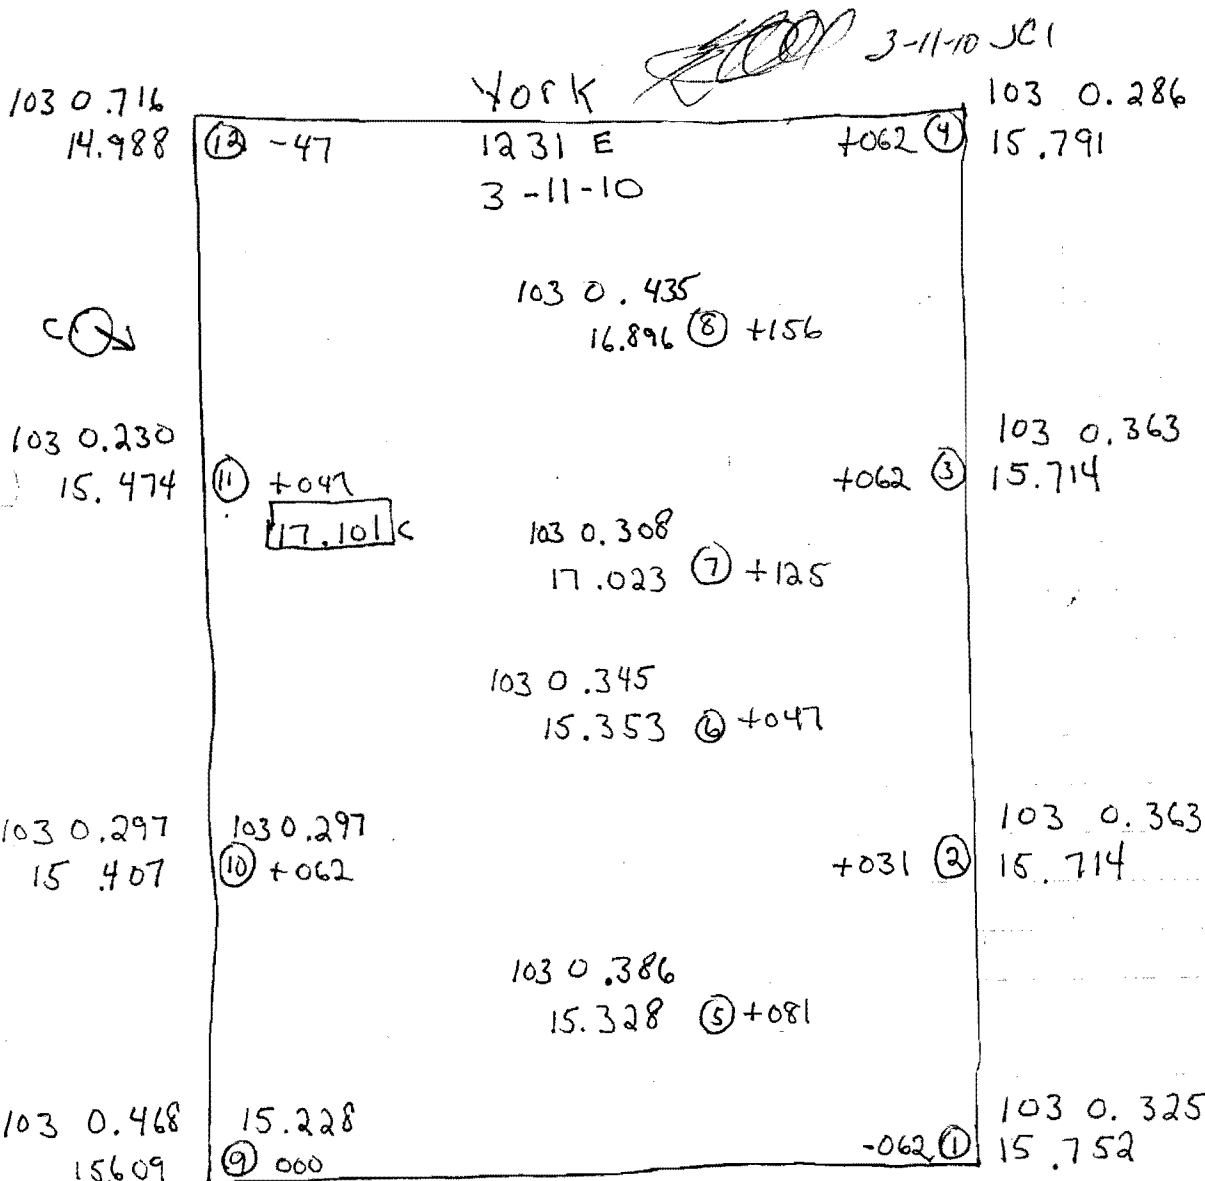 3-11-10 JCI
103 0.716
14.988
12 -47
York
1231 E
3-11-10
103 0.286
+062 4 15.791
103 0.435
16.896 8 +156
C
103 0.230
15.474 11 +047
17.101 C
103 0.363
+062 3 15.714
103 0.308
17.023 7 +125
103 0.345
15.353 6 +047
103 0.297
15.407
103 0.297
10 +062
103 0.363
+031 2 15.714
103 0.386
15.328 5 +081
103 0.468
15609
15.228
9 000
103 0.325
-062 1 15.752